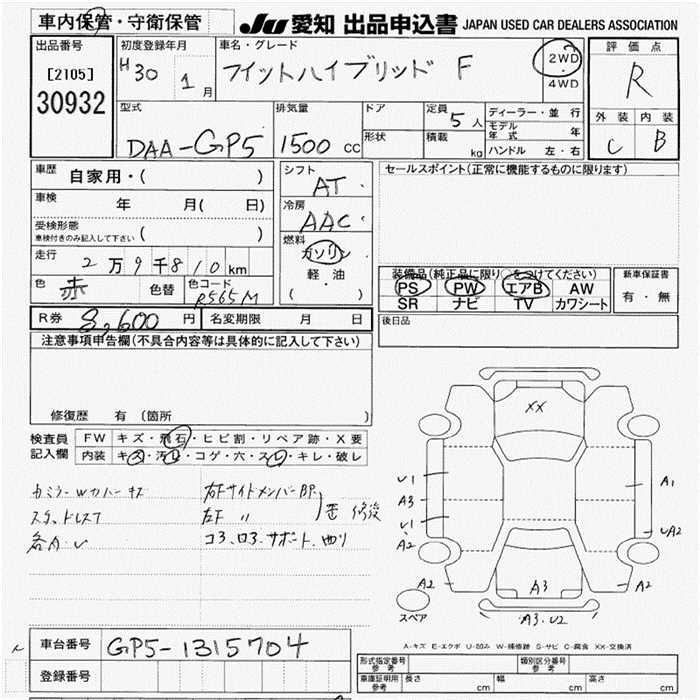 車内保管・守衛保管
JU 愛知 出品申込書 JAPAN USED CAR DEALERS ASSOCIATION
出品番号
[2105]
30932
初度登録年月
H30 1月
車名・グレード
フィットハイブリッド F
2WD
・
4WD
評価点
R
外装 内装
C B
型式
DAA-GP5
排気量
1500 cc
ドア
形状
定員 5人
積載 kg
ディーラー・並行
モデル年式 年
ハンドル 左・右
車歴
自家用・( )
車検 年 月( 日)
受検形態
車検付きのみ記入して下さい ( )
走行
2万9千810km
色 赤 色替 色コード R565M
シフト
AT
冷房
AAC
燃料
ガソリン
軽油
( ・ )
セールスポイント(正常に機能するものに限ります)
装備品(純正品に限り○をつけてください)
PS PW エアB AW
SR ナビ TV カワシート
新車保証書
有・無
後日品
R券 8,600円 名変期限 月 日
注意事項申告欄(不具合内容等は具体的に記入して下さい)
修復歴 有 〔箇所 〕
検査員記入欄
FW キズ・飛石・ヒビ割・リペア跡・X要
内装 キズ・汚レ・コゲ・穴・スレ・キレ・破レ
カミラーWカバーキズ
スタッドレス7
各A・U
右Fサイドメンバー
左F 〃
修復
コア、ロア、サポート、曲り
XX
U1
A3
U1
A2
A1
UA2
A2
A3
A2
A3.U2
スペア
A-キズ E-エクボ U-凹み W-補修跡 S-サビ C-腐食 XX-交換済
車台番号 GP5-1315704
登録番号
形式指定番号 参考
類別区分番号 参考
車庫証明用 参考 長さ cm 幅 cm 高さ cm